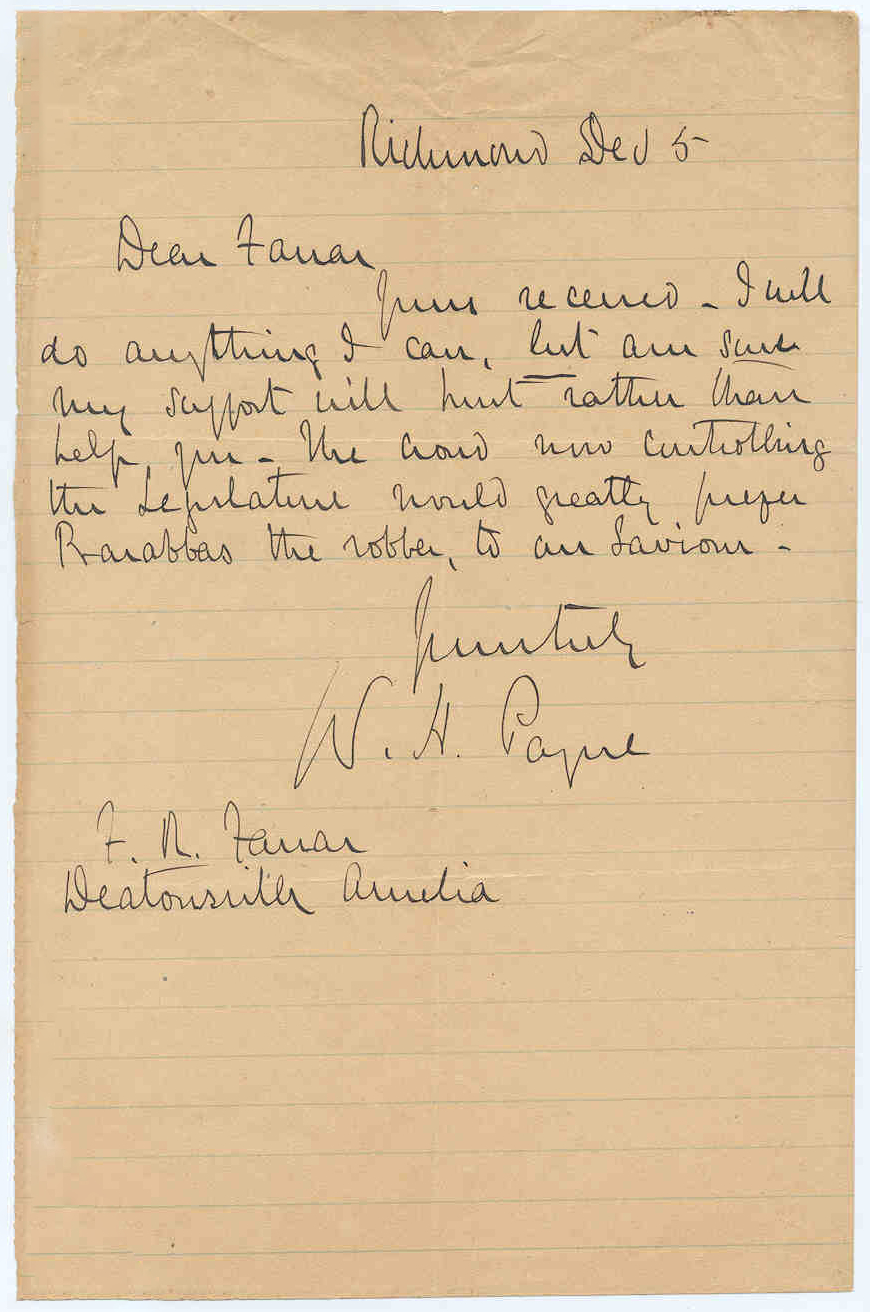 Richmond Dec 5
Dear Farrar
Yours received - I will
do anything I can, but am sure
my support will hurt rather than
help, you - The crowd now controlling
the Legislature would greatly prefer
Barabbas the robber, to our Saviour -
Yours truly
W. H. Payne
F. R. Farrar
Deatonsville Amelia